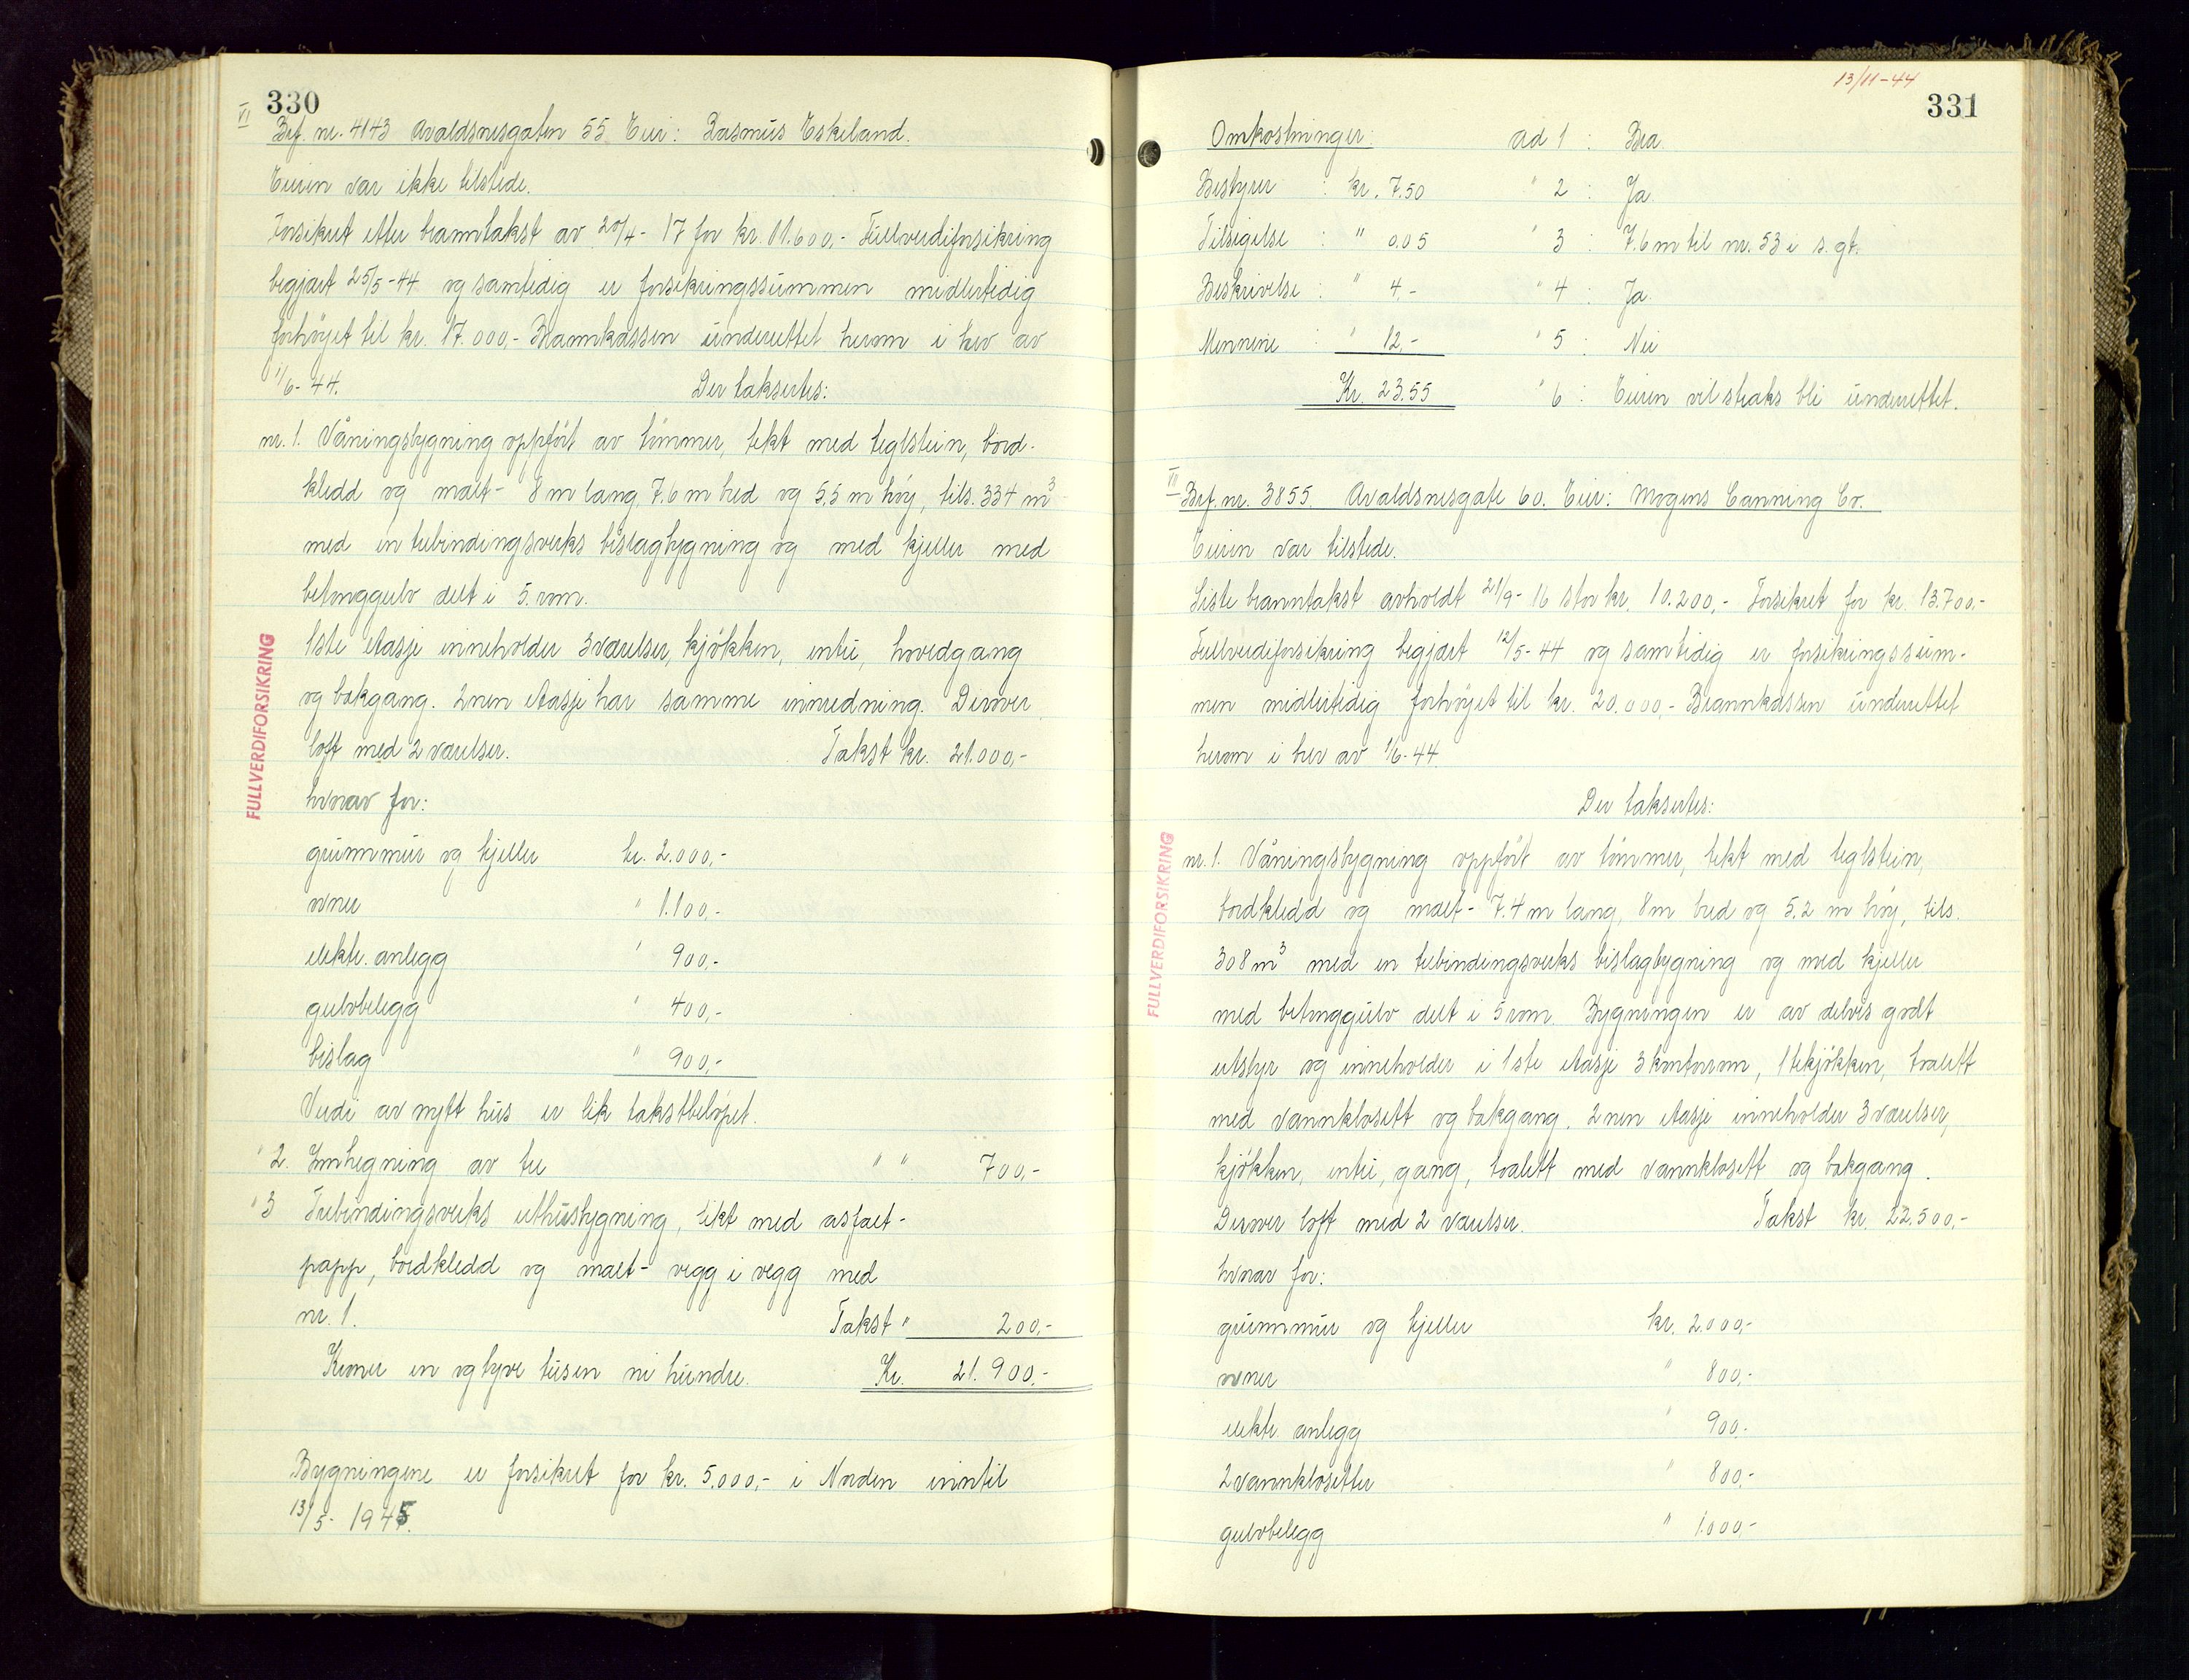 330
VI
Brf. nr. 4143 Avaldsnesgaten 55. Eier: Rasmus Eskeland.
Eieren var ikke tilstede.
Forsikret etter branntakst av 20/4-17 for kr. 11.600,- Fullverdiforsikring
begjært 25/5-44 og samtidig er forsikringssummen midlertidig
forhøyet til kr. 17.000,- Brannkassen underrettet herom i brev av
1/6-44. Der taksertes:
nr. 1. Våningsbygning oppført av tømmer, tekt med teglstein, bord-
kledd og malt- 8 m lang, 7.6 m bred og 5,5 m høy, tils. 334 m3
med en trebindingsverks bislagbygning og med kjeller med
betonggulv delt i 5. rom.
1ste etasje inneholder 3 værelser, kjøkken, entré, hovedgang
og bakgang. 2nen etasje har samme innredning. Derover
loft med 2 værelser. Takst kr. 21.000,-
hvorav for:
grunnmur og kjeller kr. 2.000,-
ovner " 1.100,-
elektr. anlegg " 900,-
gulvbelegg " 400,-
bislag " 900,-
Verdi av nytt hus er lik takstbeløpet.
" 2. Innhegning av tre " " 700,-
" 3 Trebindingsverks uthusbygning, tekt med asfalt-
papp, bordkledd og malt- vegg i vegg med
nr. 1. Takst " 200,-
Kroner en og tyve tusen ni hundre. Kr. 21.900,-
Bygningene er forsikret for kr. 5.000,- i Norden inntil
13/5- 1945.
FULLVERDIFORSIKRING
13/11-44
331
Omkostninger: ad 1 : Bra.
Bestyrer : kr. 7.50 " 2 : Ja.
Tilsigelse : " 0.05 " 3 : 7.6 m til nr. 53 i s. gt.
Beskrivelse : " 4,- " 4 : Ja.
Mennene : " 12,- " 5 : Nei
Kr. 23.55 " 6 : Eieren vil straks bli underrettet.
VII
Brf. nr. 3855. Avaldsnesgate 60. Eier: Mogens Canning Co.
Eieren var tilstede.
Siste branntakst avholdt 21/9-16 stor kr. 10.200,- Forsikret for kr. 13.700,-
Fullverdiforsikring begjært 12/5-44 og samtidig er forsikringssum-
men midlertidig forhøyet til kr. 20.000,- Brannkassen underrettet
herom i brev av 1/6-44.
Der taksertes:
nr. 1. Våningsbygning oppført av tømmer, tekt med teglstein,
bordkledd og malt- 7.4 m lang, 8 m bred og 5.2 m høy, tils.
308 m3 med en trebindingsverks bislagbygning og med kjeller
med betonggulv delt i 5 rom. Bygningen er av delvis godt
utstyr og inneholder i 1ste etasje 3 kontorrom, 1 tekjøkken, toalett
med vannklosett og bakgang. 2nen etasje inneholder 3 værelser,
kjøkken, entré, gang, toalett med vannklosett og bakgang.
Derover loft med 2 værelser. Takst kr. 22.500,-
hvorav for:
grunnmur og kjeller kr. 2.000,-
ovner " 800,-
elektr. anlegg " 900,-
2 vannklosetter " 800,-
gulvbelegg " 1.000,-
FULLVERDIFORSIKRING